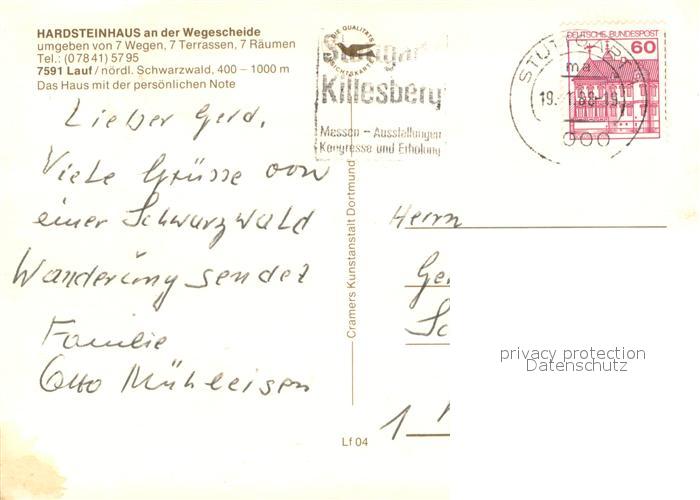 HARDSTEINHAUS an der Wegescheide
umgeben von 7 Wegen, 7 Terrassen, 7 Räumen
Tel.: (07841) 5795
7591 Lauf / nördl. Schwarzwald, 400 – 1000 m
Das Haus mit der persönlichen Note
Lieber Gerd,
Viele Grüsse von
einer Schwarzwald
Wanderung sendet
Familie
Otto Mühleisen
DIE QUALITÄTS
Killesberg
Messen – Ausstellungen
Kongresse und Erholung
STUTTGART 1
ma
19.-1.88-19
900
DEUTSCHE BUNDESPOST
60
Herrn
Ge
Sc
1
Cramers Kunstanstalt Dortmund
Lf 04
privacy protection
Datenschutz